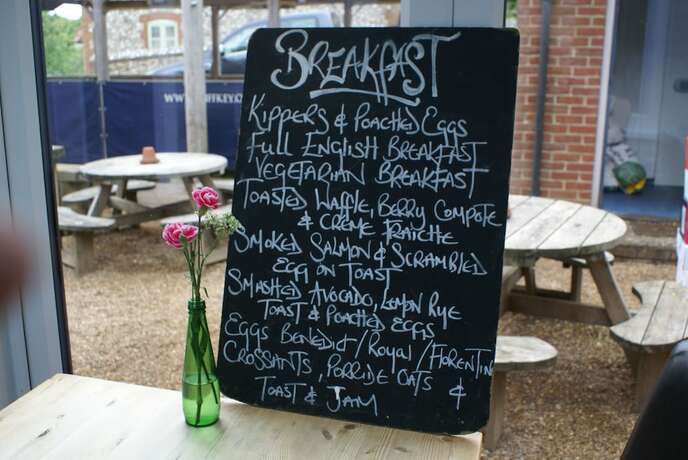 BREAKFAST
KIPPERS & POACHED EGGS
FULL ENGLISH BREAKFAST
VEGETARIAN BREAKFAST
TOASTED WAFFLE, BERRY COMPOTE
& CRÈME FRAICHE
SMOKED SALMON & SCRAMBLED
EGG ON TOAST
SMASHED AVOCADO, LEMON RYE
TOAST & POACHED EGGS
EGGS BENEDICT / ROYAL / FLORENTIN
CROSSANTS, PORRIDE OATS &
TOAST & JAM